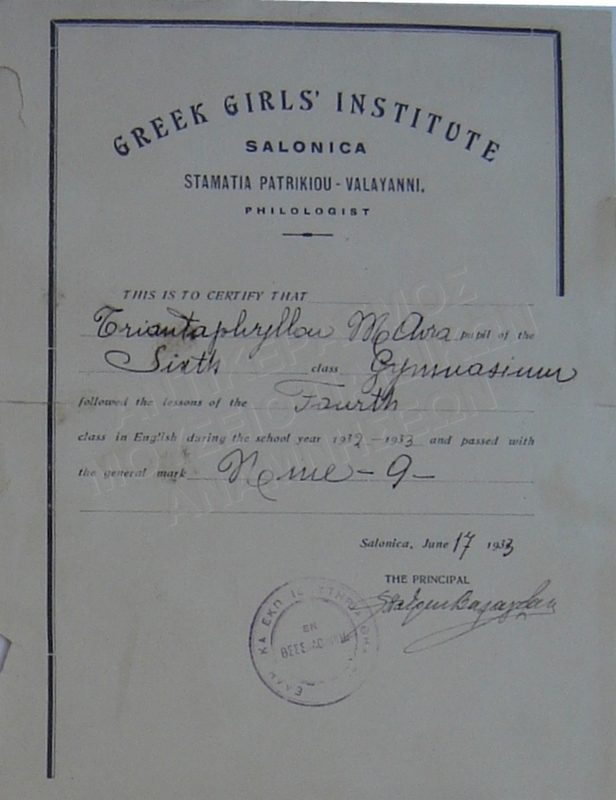 GREEK GIRLS' INSTITUTE
SALONICA
STAMATIA PATRIKIOU - VALAYANNI.
PHILOLOGIST
THIS IS TO CERTIFY THAT
Triantaphyllou M pupil of the
Sixth class Gymnasium
followed the lessons of the Fourth
class in English during the school year 1932-1933 and passed with
the general mark Nine - 9 -
Salonica, June 17 1933
THE PRINCIPAL
ΕΝ